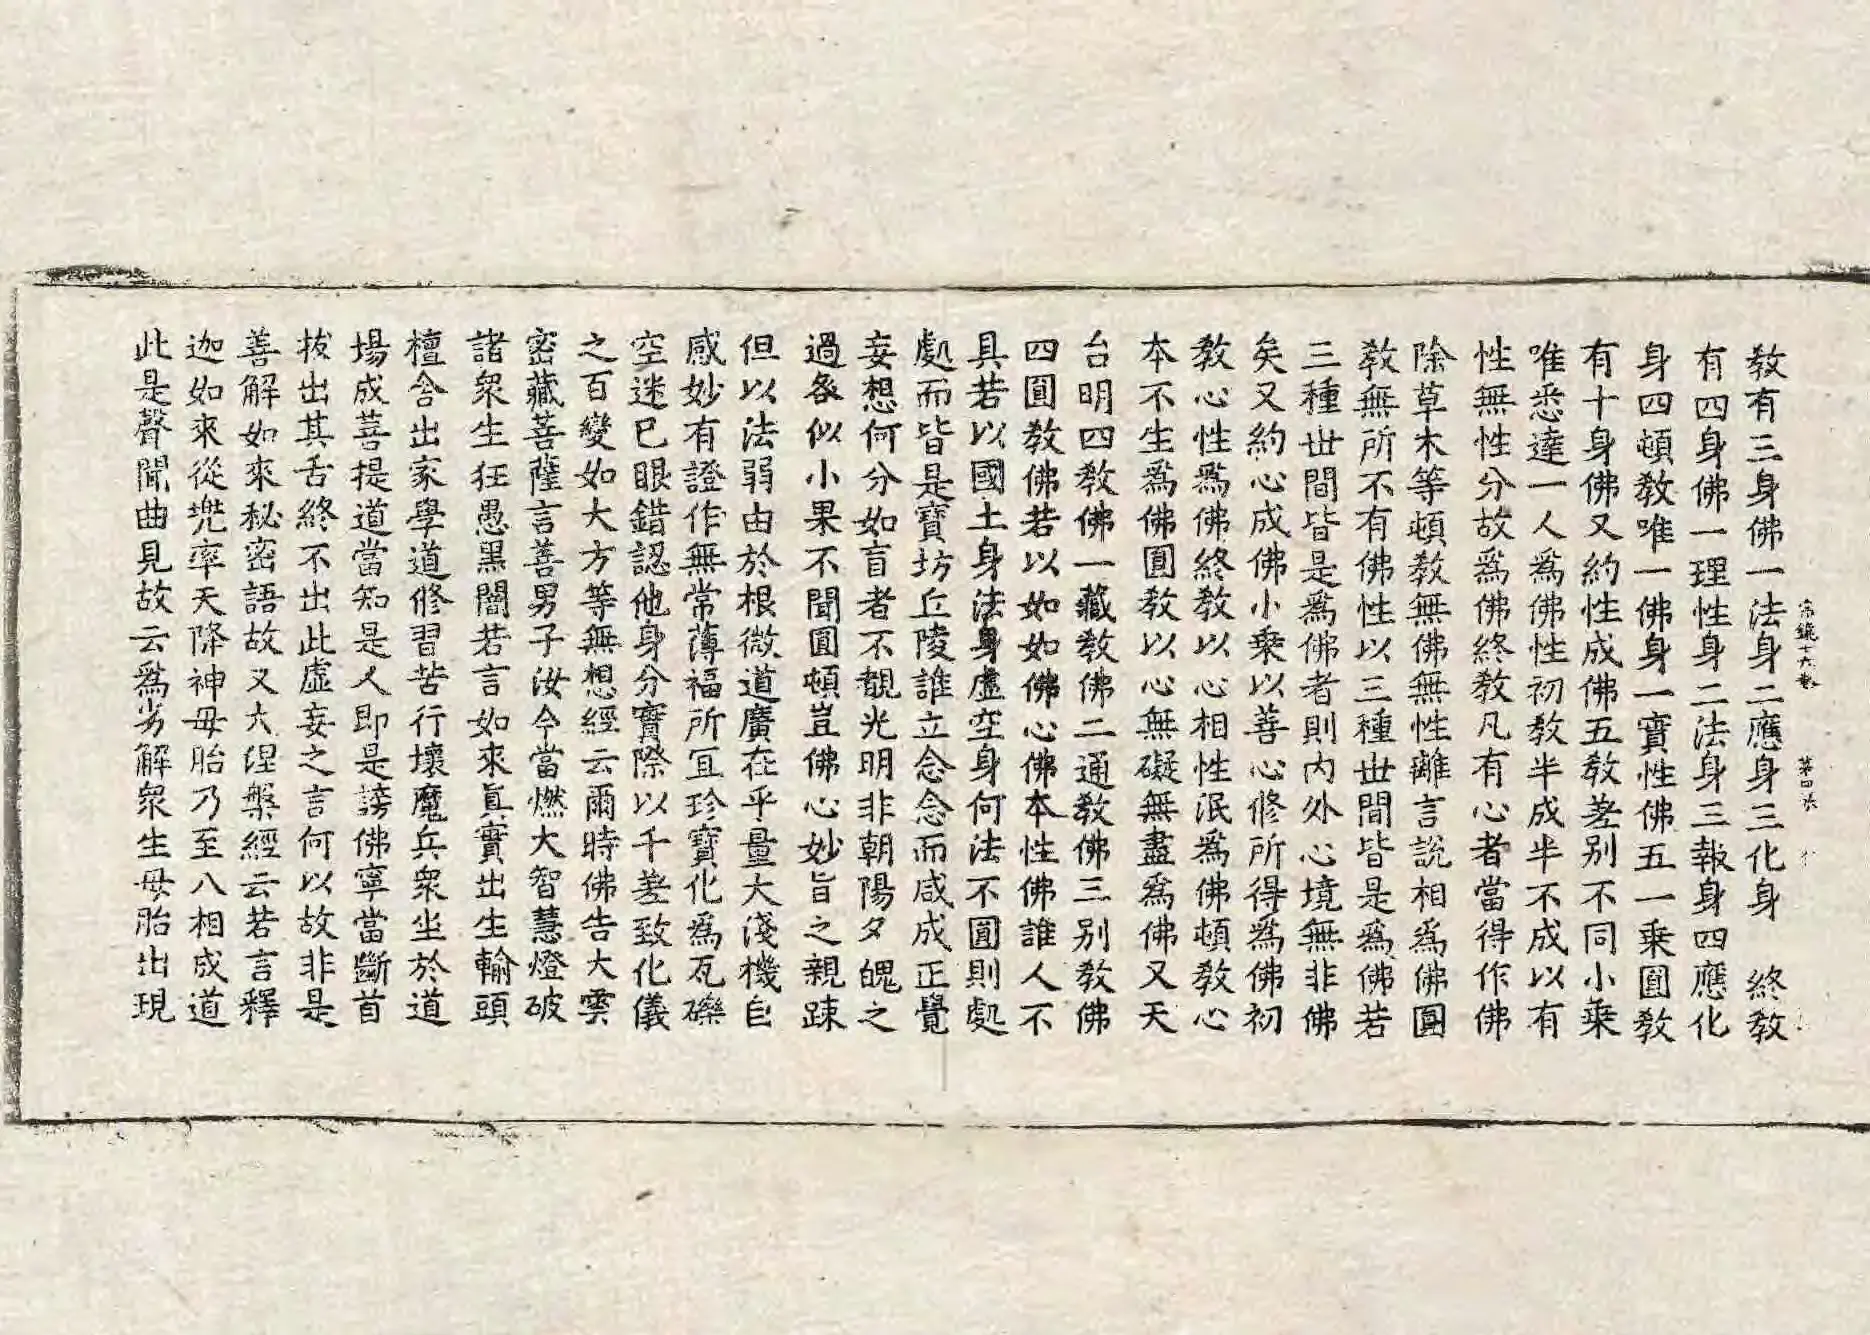 教有三身佛一法身二應身三化身　終教
宗鏡十六卷　第四張
有四身佛一理性身二法身三報身四應化
身四頓教唯一佛身一實性佛五一乘圓教
有十身佛又約性成佛五教差別不同小乘
唯悉達一人爲佛性初教半成半不成以有
性無性分故爲佛終教凡有心者當得作佛
除草木等頓教無佛無性離言說相爲佛圓
教無所不有佛性以三種世間皆是爲佛若
三種世間皆是爲佛者則內外心境無非佛
矣又約心成佛小乘以善心修所得爲佛初
教心性爲佛終教以心相性泯爲佛頓教心
本不生爲佛圓教以心無礙無盡爲佛又天
台明四教佛一藏教佛二通教佛三別教佛
四圓教佛若以如如佛心佛本性佛誰人不
具若以國土身法身虛空身何法不圓則處
處而皆是寶坊丘陵誰立念念而咸成正覺
妄想何分如盲者不覩光明非朝陽夕魄之
過各似小果不聞圓頓豈佛心妙旨之親踈
但以法弱由於根微道廣在乎量大淺機自
感妙有證作無常薄福所宜珍寶化爲瓦礫
空迷已眼錯認他身分實際以千差致化儀
之百變如大方等無想經云爾時佛告大雲
密藏菩薩言善男子汝今當燃大智慧燈破
諸衆生狂愚黑闇若言如來眞實出生輸頭
檀舍出家學道修習苦行壞魔兵衆坐於道
場成菩提道當知是人即是謗佛寧當斷首
拔出其舌終不出此虛妄之言何以故非是
善解如來秘密語故又大涅槃經云若言釋
迦如來從兠率天降神母胎乃至八相成道
此是聲聞曲見故云爲劣解衆生母胎出現